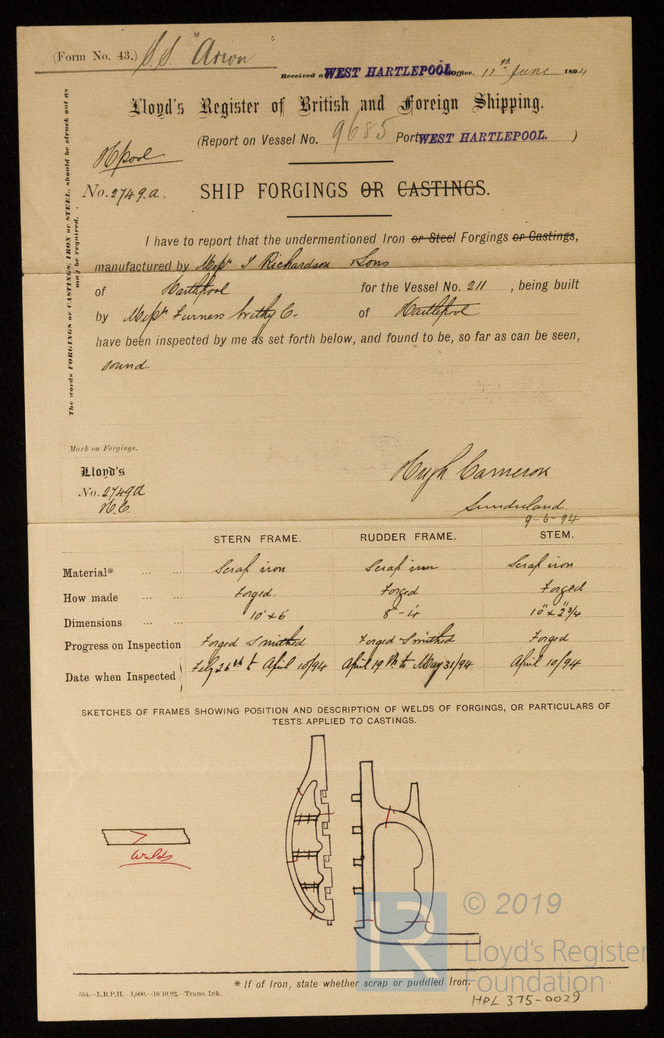 (Form No. 43.) S.S. "Arion"
Received at WEST HARTLEPOOL Office, 11th June 1894
Lloyd's Register of British and Foreign Shipping.
(Report on Vessel No. 9685 Port WEST HARTLEPOOL. )
H'pool
No. 2749.a. SHIP FORGINGS OR CASTINGS.
The words FORGINGS or CASTINGS, IRON or STEEL, should be struck out as
may be required.
I have to report that the undermentioned Iron or Steel Forgings or Castings,
manufactured by Messrs T Richardson & Sons
of Hartlepool for the Vessel No. 211 , being built
by Messrs Furness Withy Co. of Hartlepool
have been inspected by me as set forth below, and found to be, so far as can be seen,
sound
Mark on Forgings.
Lloyd's
No. 2749a
H.C.
Hugh Cameron
Sunderland
9-6-94
STERN FRAME. RUDDER FRAME. STEM.
Material* Scrap iron Scrap iron Scrap iron
How made Forged. Forged Forged
Dimensions 10 x 6 10" x 2" 3/4
Progress on Inspection Forged Smithed Forged Smithed Forged
Date when Inspected Feby 26th to April 10/94 April 19th to May 31/94 April 10/94
SKETCHES OF FRAMES SHOWING POSITION AND DESCRIPTION OF WELDS OF FORGINGS, OR PARTICULARS OF
TESTS APPLIED TO CASTINGS.
Welds
© 2019
LR Lloyd's Register
Foundation
* If of Iron, state whether scrap or puddled Iron.
504.—L.R.P.H. 1,000.—18/10/92.—Trans. Ink.
HPL 375-0029